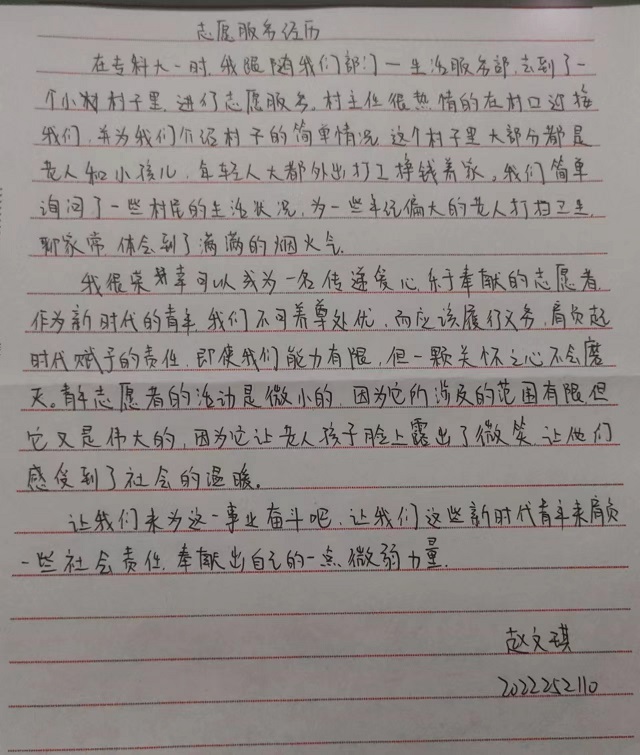 志愿服务经历
在专科大一时,我跟随我们部门一生活服务部,去到了一
个小村村子里,进行志愿服务,村主任很热情的在村口迎接
我们,并为我们介绍村子的简单情况,这个村子里大部分都是
老人和小孩儿,年轻人大都外出打工挣钱养家。我们简单
询问了一些村民的生活状况,为一些年纪偏大的老人打扫卫生,
聊家常,体会到了满满的烟火气.
我很荣幸可以成为一名传递爱心,乐于奉献的志愿者,
作为新时代的青年,我们不可养尊处优,而应该履行义务,肩负起
时代赋予的责任,即使我们能力有限,但一颗关怀之心不会磨
灭。青年志愿者的活动是微小的,因为它所涉及的范围有限,但
它又是伟大的,因为它让老人孩子脸上露出了微笑,让他们
感受到了社会的温暖。
让我们来为这一事业奋斗吧,让我们这些新时代青年来肩负
一些社会责任,奉献出自己的一点微弱力量.
赵文琪
2022252110